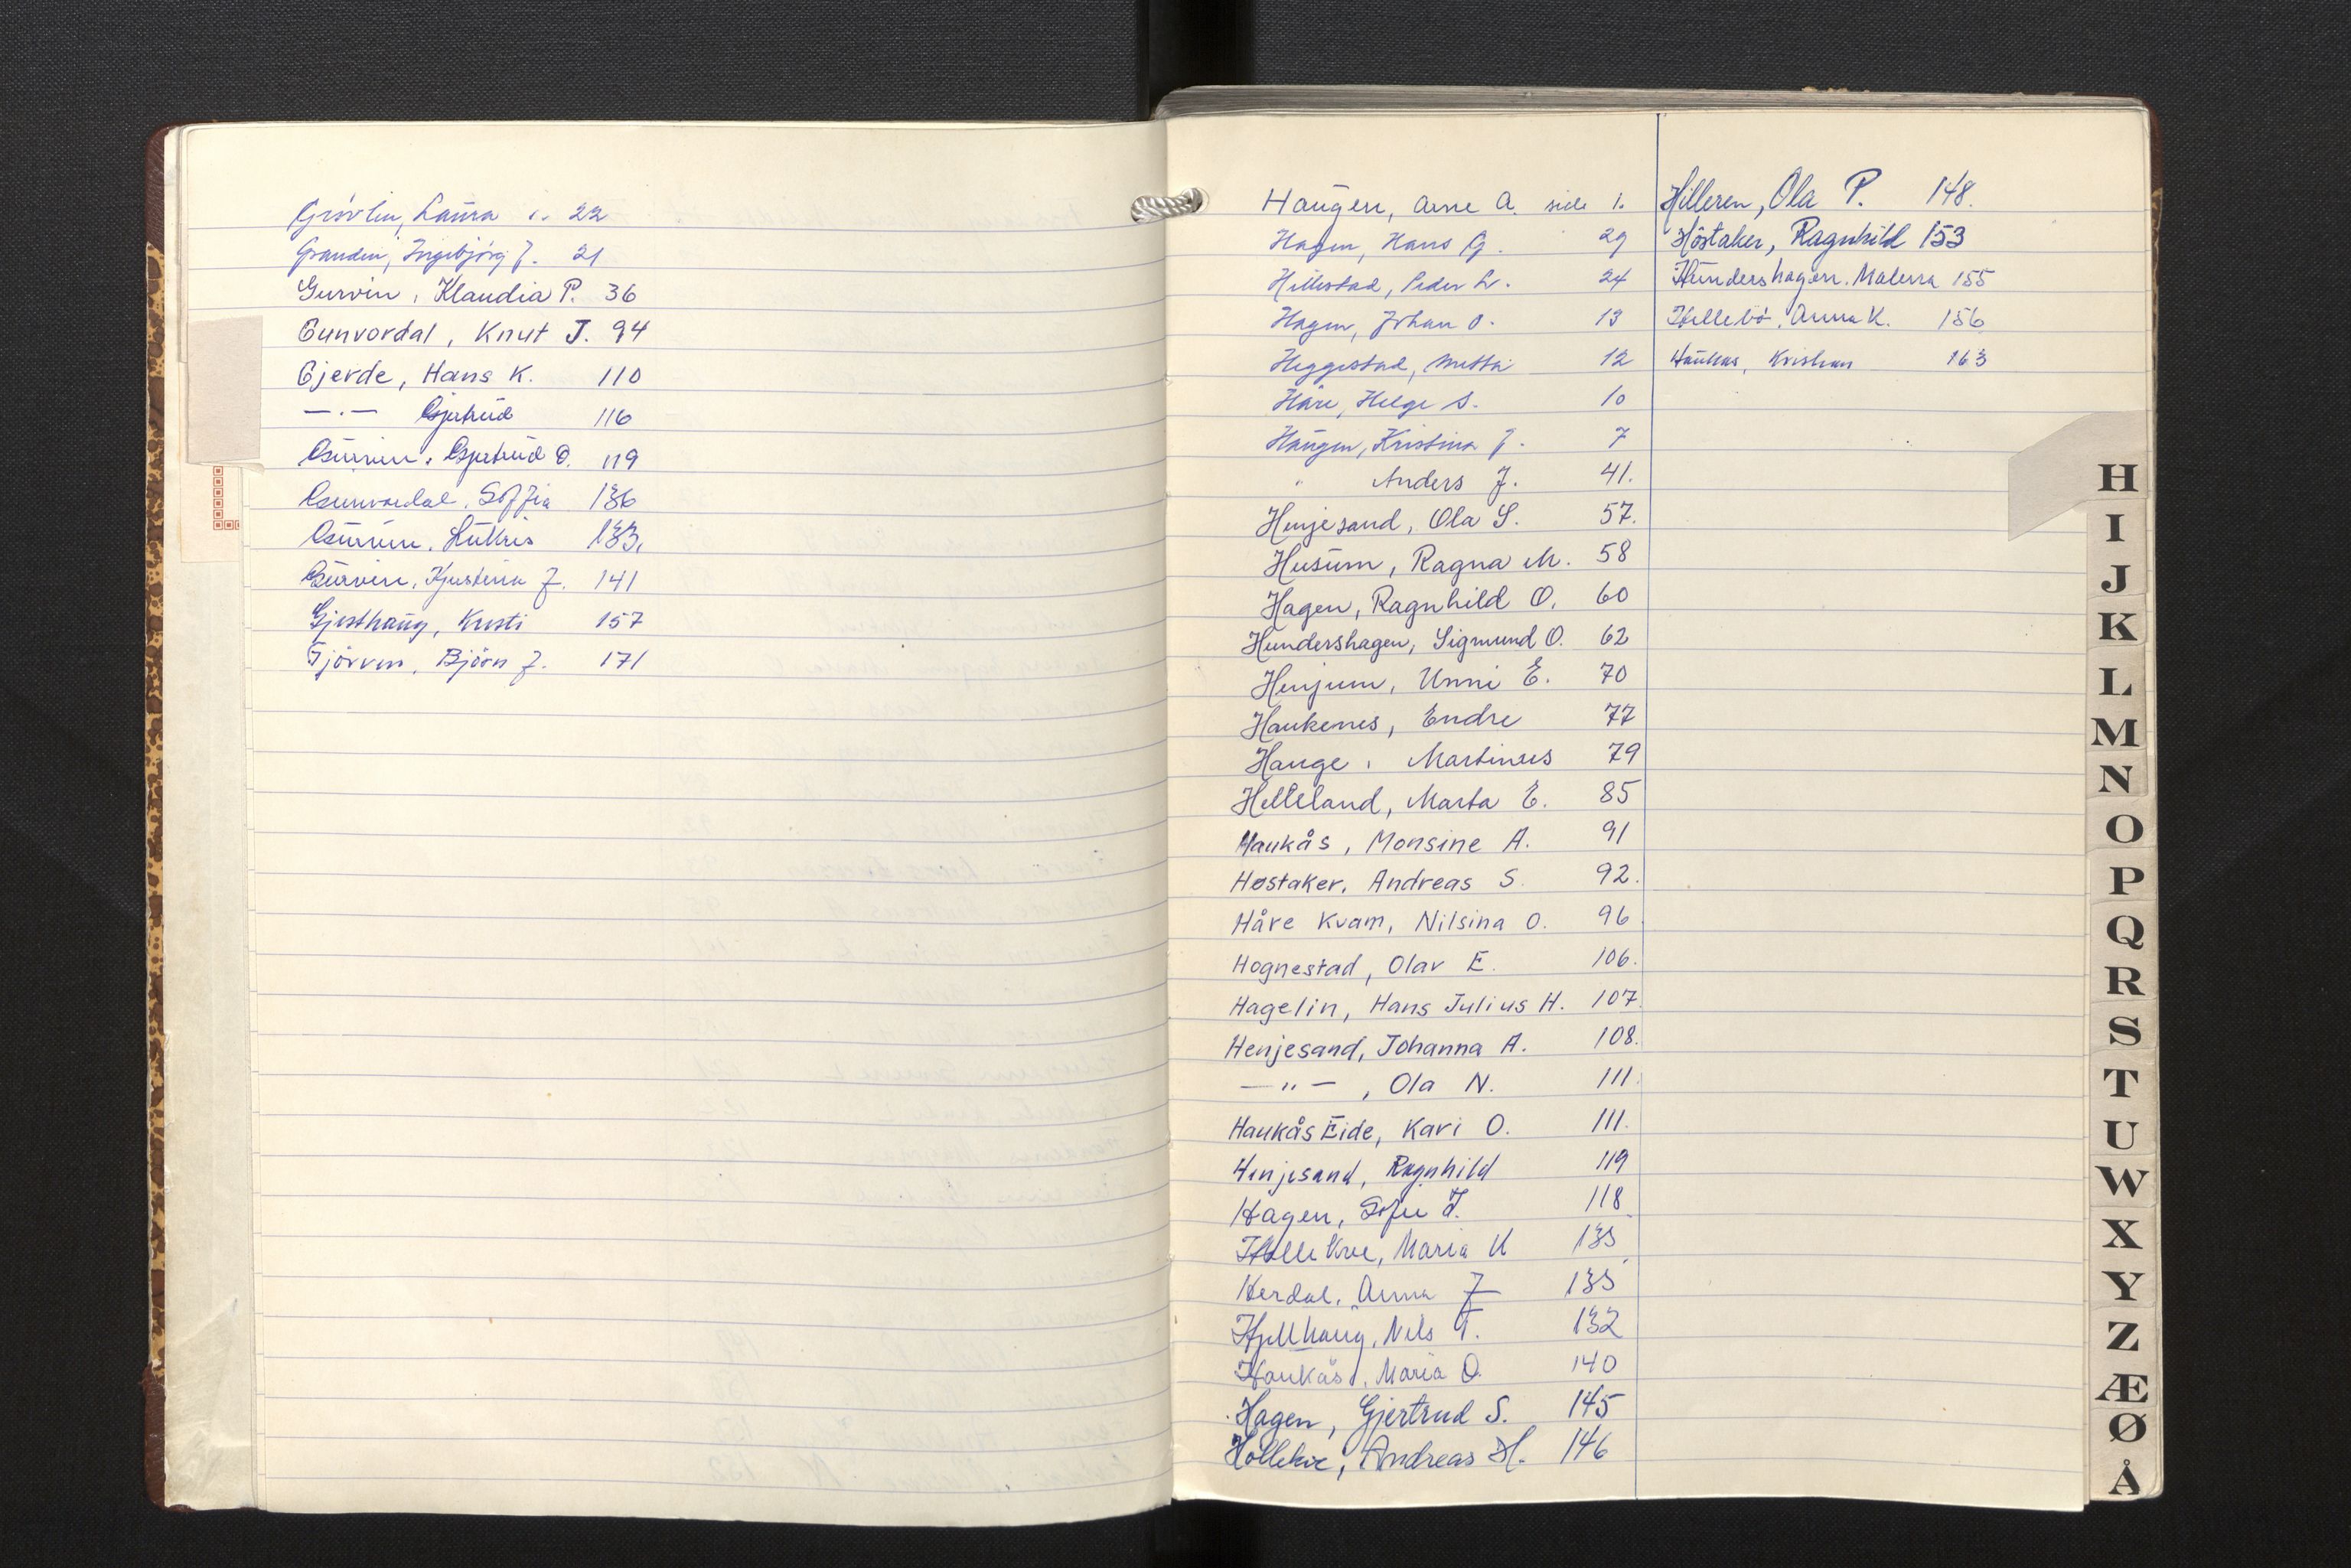 Grövlin, Laura s. 22
Grandin, Ingebjörg J. 21
Gurvin, Klaudia P. 36
Gunvordal, Knut J. 94
Gjerde, Hans K. 110
—·— Gjertrud 116
Gurvin, Gjertrud O. 119
Gunvordal, Soffia 136
Gurvin, Lütkris 133.
Gurvin, Kjestina J. 141
Gjesthaug, Kristi 157
Gjörven, Björn J. 171
Haugen, Arne A. side 1.
Hagen, Hans G. 29
Hillestad, Peder L. 24
Hagen, Johan O. 13
Heggestad, Metta 12
Håre, Helge S. 10
Haugen, Kristina J. 7
" Anders J. 41.
Henjesand, Ola S. 57.
Husum, Ragna M. 58
Hagen, Ragnhild O. 60
Hundershagen, Sigmund O. 62
Henjum, Unni E. 70
Haukenes, Endre 77
Hauge, Martinus 79
Helleland, Marta E. 85
Haukås, Monsine A. 91
Høstaker, Andreas S. 92.
Håre Kvam, Nilsina O. 96
Hognestad, Olav E. 106.
Hagelin, Hans Julius H. 107.
Henjesand, Johanna A. 108.
—"—, Ola N. 111.
Haukås Eide, Kari O. 111.
Henjesand, Ragnhild 119
Hagen, Sofie J. 118
Hølle Kve, Maria K 135
Herdal, Anna J 135
Hjellhaug, Nils T. 132
Haukås, Maria O. 140
Hagen, Gjertrud S. 145
Höllekve, Andreas H. 146
Hilleren, Ola P. 148.
Höstaker, Ragnhild 153
Hundershagen. Malena 155
Hellebö, Anna K. 156
Haukas, Kristian 163
H
I
J
K
L
M
N
O
P
Q
R
S
T
U
W
X
Y
Z
Æ
Ø
Å